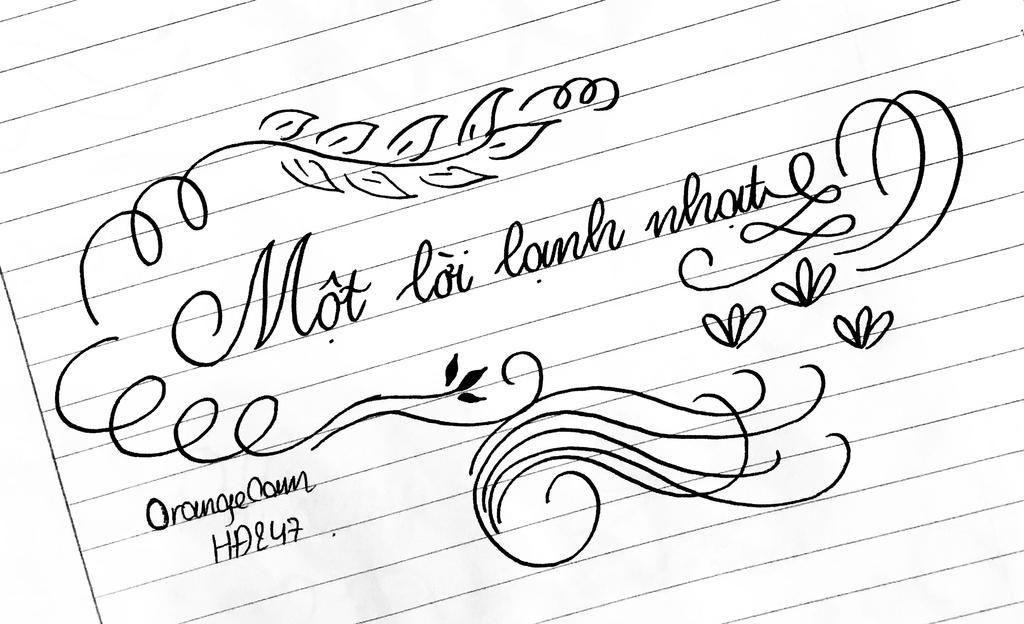 Một lời lạnh nhạt
OrangeDawn
HĐ247